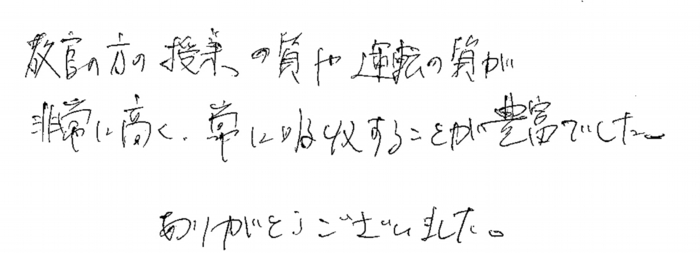 教官の方の授業の質や運転の質が
非常に高く、常に吸収することが豊富でした。
ありがとうございました。